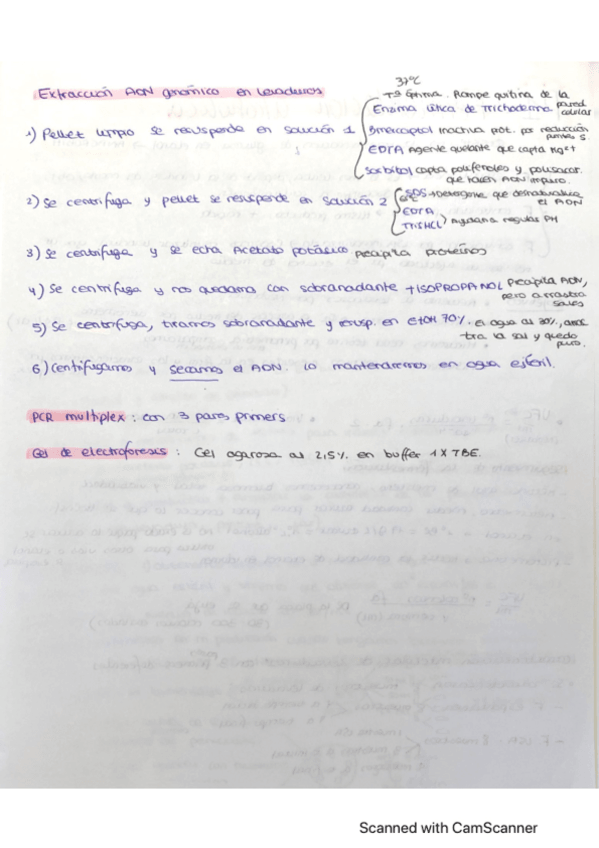 37ºC
Extracción ADN genómico en levaduras
Tª óptima. Rompe quitina de la pared celular
Enzima lítica de Trichoderma
1) Pellet limpio se resuspende en solución 1
βmercaptol inactiva pot. por reducción puentes S
EDTA Agente quelante que capta Mg2+
Sorbitol capta polifenoles y polisacar. que hacen ADN impuro.
2) Se centrifuga y pellet se resuspende en solución 2
SDS → Detergente que desnaturaliza el ADN
EDTA
TRISHCL Ayudan a regular pH
3) Se centrifuga y se echa Acetato potásico precipita proteínas
4) Se centrifuga y nos quedamos con sobrenadante + ISOPROPANOL Precipita ADN, pero arrastra sales
5) Se centrifuga, tiramos sobrenadante y resusp. en EtOH 70%. el agua al 30%, arrastra la sal y queda puro.
6) Centrifugamos y secamos el ADN. Lo mantendremos en agua estéril.
PCR multiplex : con 3 pares primers
Gel de electroforesis : Gel agarosa al 2,5% en buffer 1X TBE.
Scanned with CamScanner